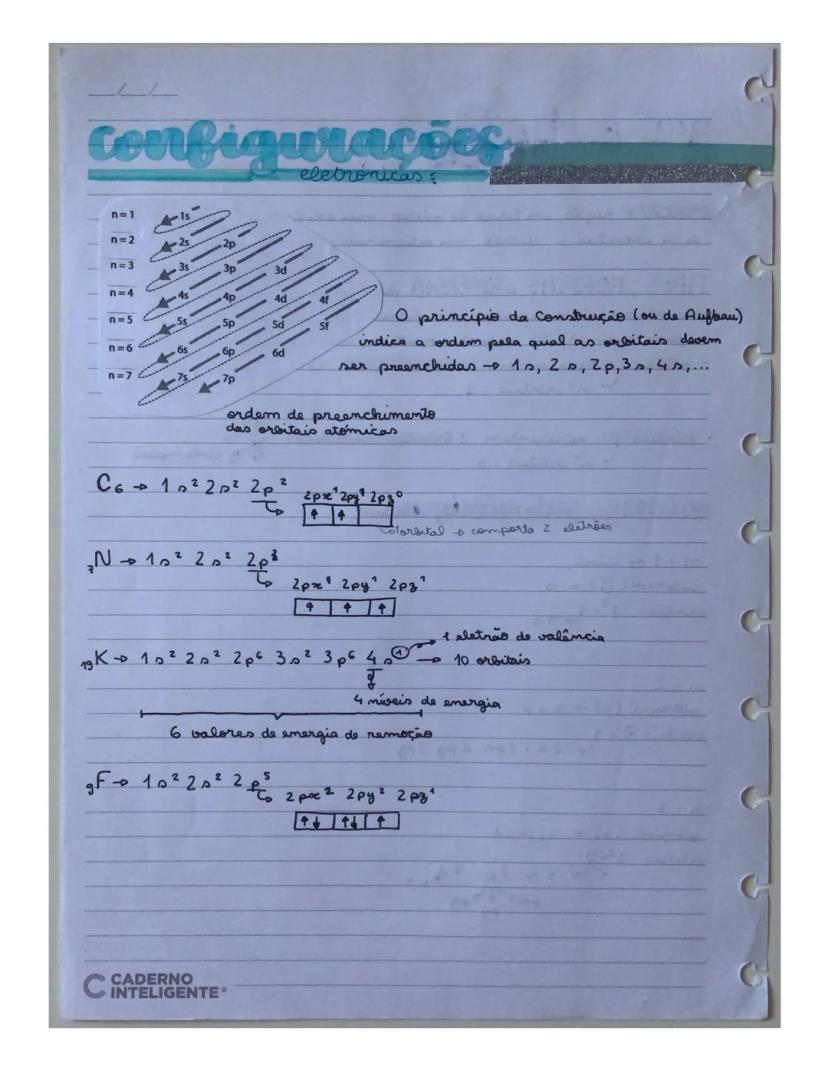 __/__/__
configurações
eletrónicas:
n=1 1s
n=2 2s 2p
n=3 3s 3p 3d
n=4 4s 4p 4d 4f
n=5 5s 5p 5d 5f
n=6 6s 6p 6d
n=7 7s 7p
O princípio da Construção (ou de Aufbau)
indica a ordem pela qual as orbitais devem
ser preenchidas → 1s, 2s, 2p, 3s, 4s,...
ordem de preenchimento
das orbitais atómicas
C₆ → 1s² 2s² 2p²
2px¹ 2py¹ 2pz⁰
↑ ↑
orbital → comporta 2 eletrões
₇N → 1s² 2s² 2p³
2px¹ 2py¹ 2pz¹
↑ ↑ ↑
1 eletrão de valência
₁₉K → 1s² 2s² 2p⁶ 3s² 3p⁶ 4s¹ → 10 orbitais
4 níveis de energia
6 valores de energia de remoção
₉F → 1s² 2s² 2p⁵
2px² 2py² 2pz¹
↑↓ ↑↓ ↑
C CADERNO
INTELIGENTE®